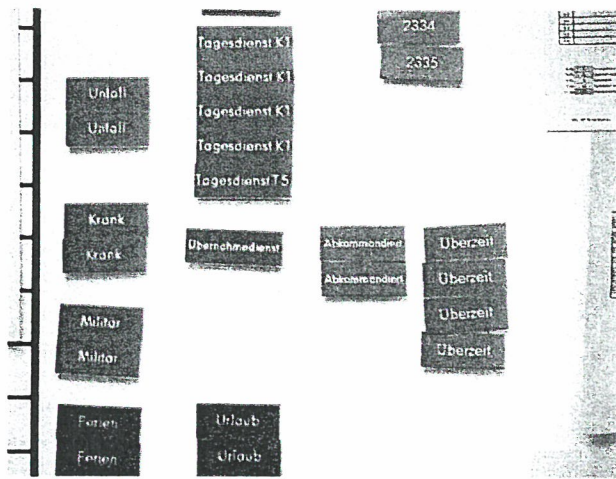 Unfall
Unfall
Krank
Krank
Militär
Militär
Ferien
Ferien
Tagesdienst K1
Tagesdienst K1
Tagesdienst K1
Tagesdienst K1
Tagesdienst T5
Übernahmedienst
Urlaub
Urlaub
2334
2335
Abkommandiert
Abkommandiert
Überzeit
Überzeit
Überzeit
Überzeit